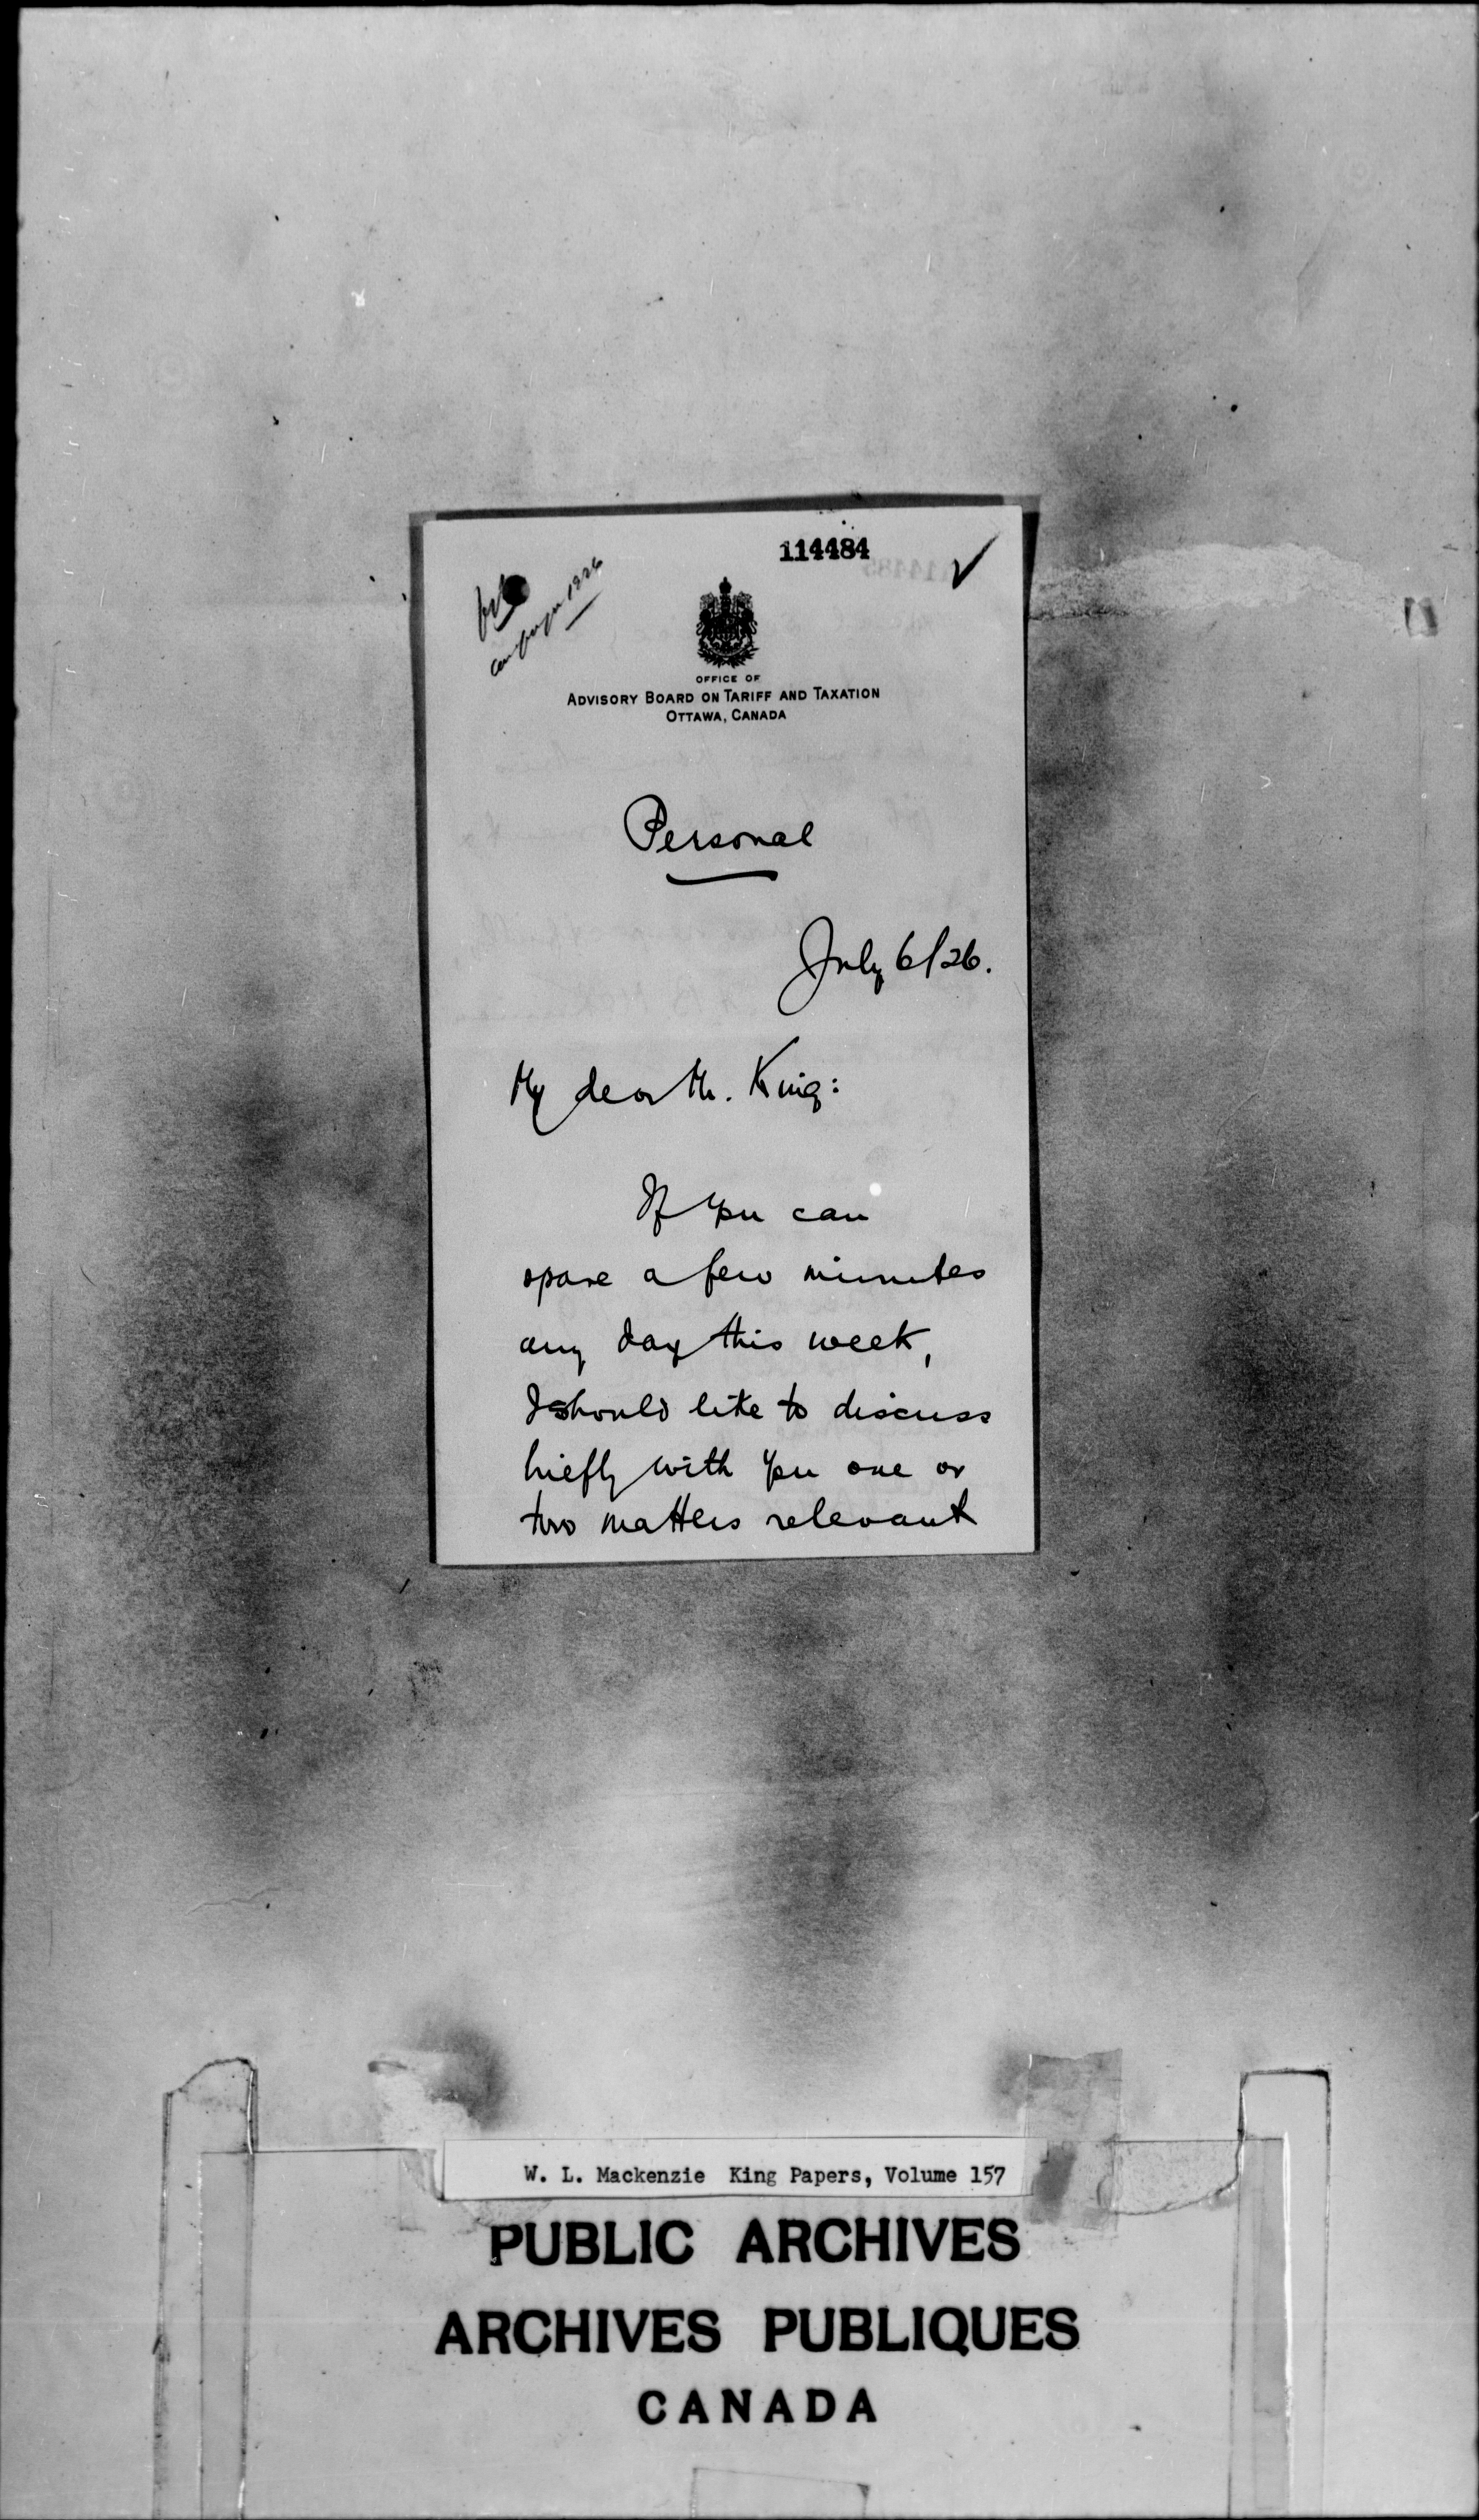 114484
file
campaign 1926
OFFICE OF
ADVISORY BOARD ON TARIFF AND TAXATION
OTTAWA, CANADA
Personal
July 6/26.
My dear Mr. King:
If you can
spare a few minutes
any day this week,
I should like to discuss
briefly with you one or
two matters relevant
W. L. Mackenzie King Papers, Volume 157
PUBLIC ARCHIVES
ARCHIVES PUBLIQUES
CANADA